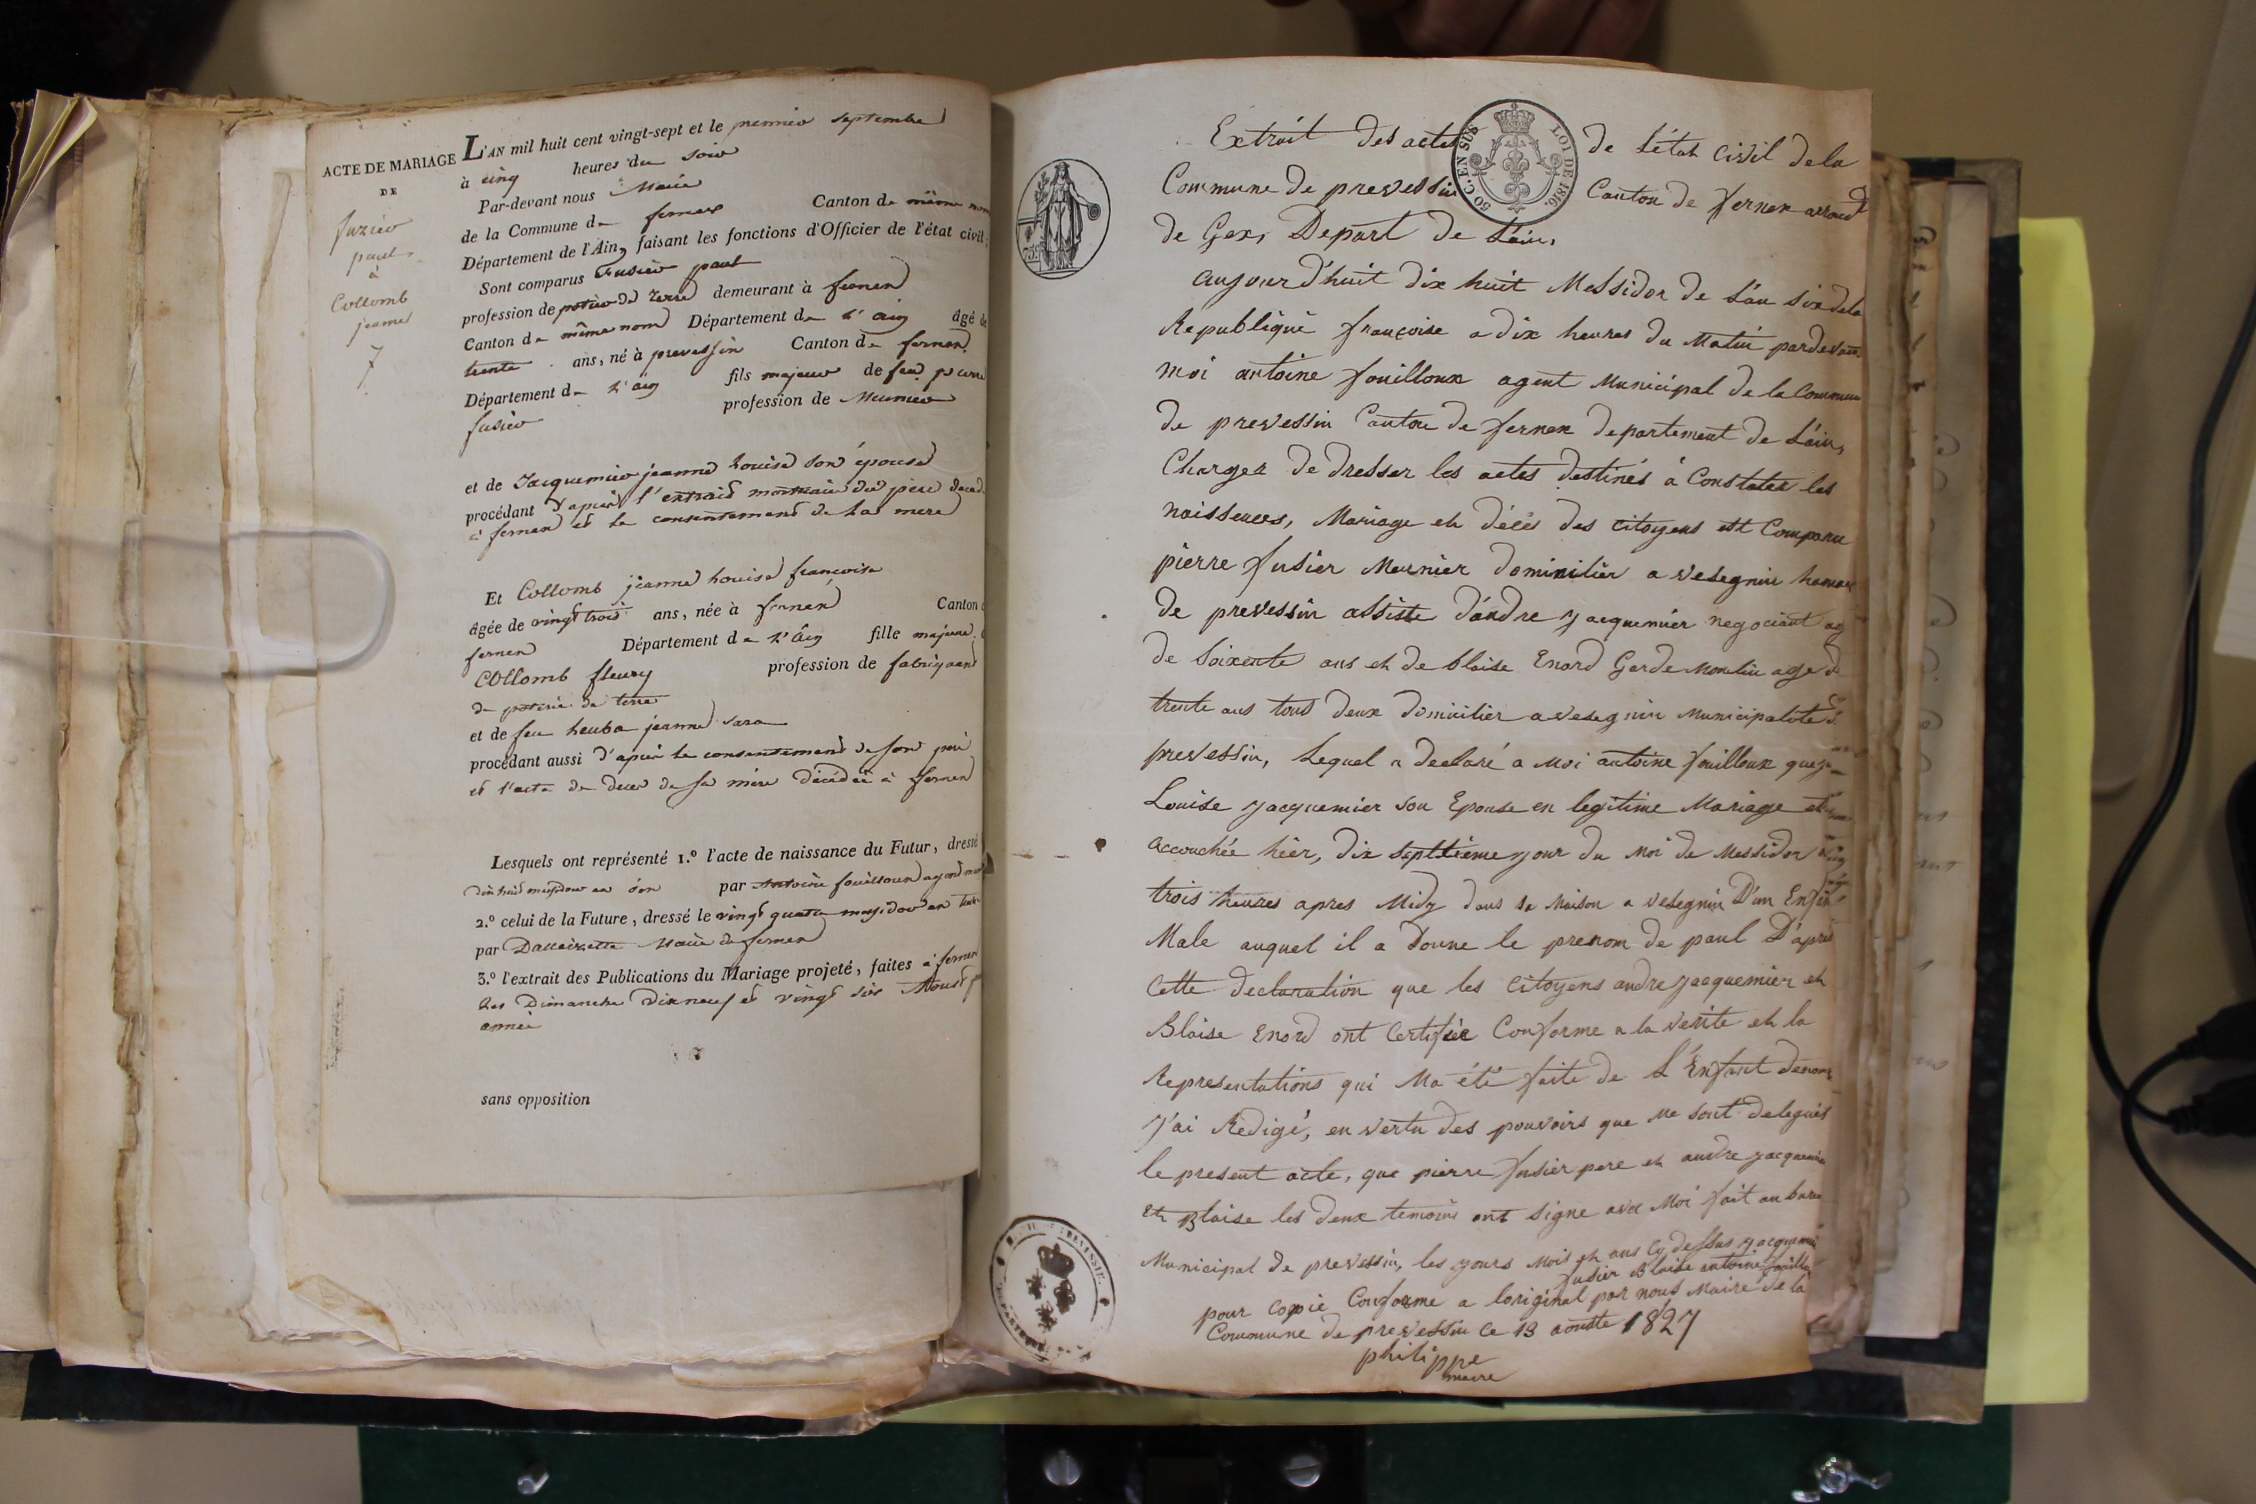 ACTE DE MARIAGE
DE
fuzier
paul
à
Collomb
jeanne
7
L'AN mil huit cent vingt-sept et le premier septembre
à cinq heures du soir
Par-devant nous Maire
de la Commune de fernex Canton de même nom
Département de l'Ain, faisant les fonctions d'Officier de l'état civil;
Sont comparus fusier paul
profession de potier de terre demeurant à fernex
Canton de même nom Département de l'ain âgé de
trente ans, né à prevessin Canton de fernex
Département de l'ain fils majeur de feu pierre
fusier profession de Meunier
et de Jacquemier jeanne Louise son épouse
procédant d'après l'extrait mortuaire du père décédé
à fernex et le consentement de la mere
Et Collomb jeanne Louise françoise
âgée de vingt trois ans, née à fernex Canton
fernex Département de l'Ain fille majeure
Collomb fleury profession de fabriquant
de poterie de terre
et de feu heuba jeanne sara
procédant aussi d'après le consentement de son père
et l'acte de deces de sa mère décédée à fernex
Lesquels ont représenté 1.º l'acte de naissance du Futur, dressé
dix huit messidor an six par Antoine fouilloux agent
2.º celui de la Future, dressé le vingt quatre messidor an
par Maire de fernex
3.º l'extrait des Publications du Mariage projeté, faites à fernex
les Dimanche dix neuf et vingt six Aoust
année
sans opposition
50 C. EN SUS
LOI DE 1816.
75
Extrait des actes de L'état civil de la
Commune de prevessin Canton de fernex arrond
de Gex, Depart de L'ain,
aujourd'huit dix huit Messidor de L'an six de la
Republique françoise a dix heures du Matin pardevant
moi antoine fouilloux agent Municipal de la Commune
de prevessin Canton de fernex departement de L'ain,
Charger de dresser les actes destinés à Constater les
naissences, Mariage et décés des citoyens est Comparu
pierre fusier Meunier domicilier a vesegnin hameau
de prevessin assiste d'andre jacquemier negociant ag
de Soixente ans et de blaise Enord Garde Moulin age de
trente ans tous deux domicilier a vesegnin Municipalité de
prevessin, Lequel a declaré a Moi antoine fouilloux que
Louise jacquemier son Epouse en legitime Mariage et
accouchée hier, dix septtieme jour du Moi de Messidor
trois heures apres Midy dans sa Maison a vesegnin D'un Enfan
Male auquel il a Donne le prenom de paul D'apres
Cette declaration que les Citoyens andre jacquemier et
Blaise Enord ont Certifiée Conforme a la verite et la
Representations qui Ma été faite de L'Enfant denomé
J'ai Redigé, en vertu des pouvoirs que me sont delegués
le present acte, que pierre fusier pere et andre jacquemier
Et Blaise les deux temoins ont signe avec Moi fait au bureau
Municipal de prevessin, les jours Mois et ans Cy dessus jacquemié
fusier Blaise antoine fouilloux
pour copie Conforme a loriginal par nous Maire de la
Commune de prevessin ce 13 aouste 1827
philippe
maire